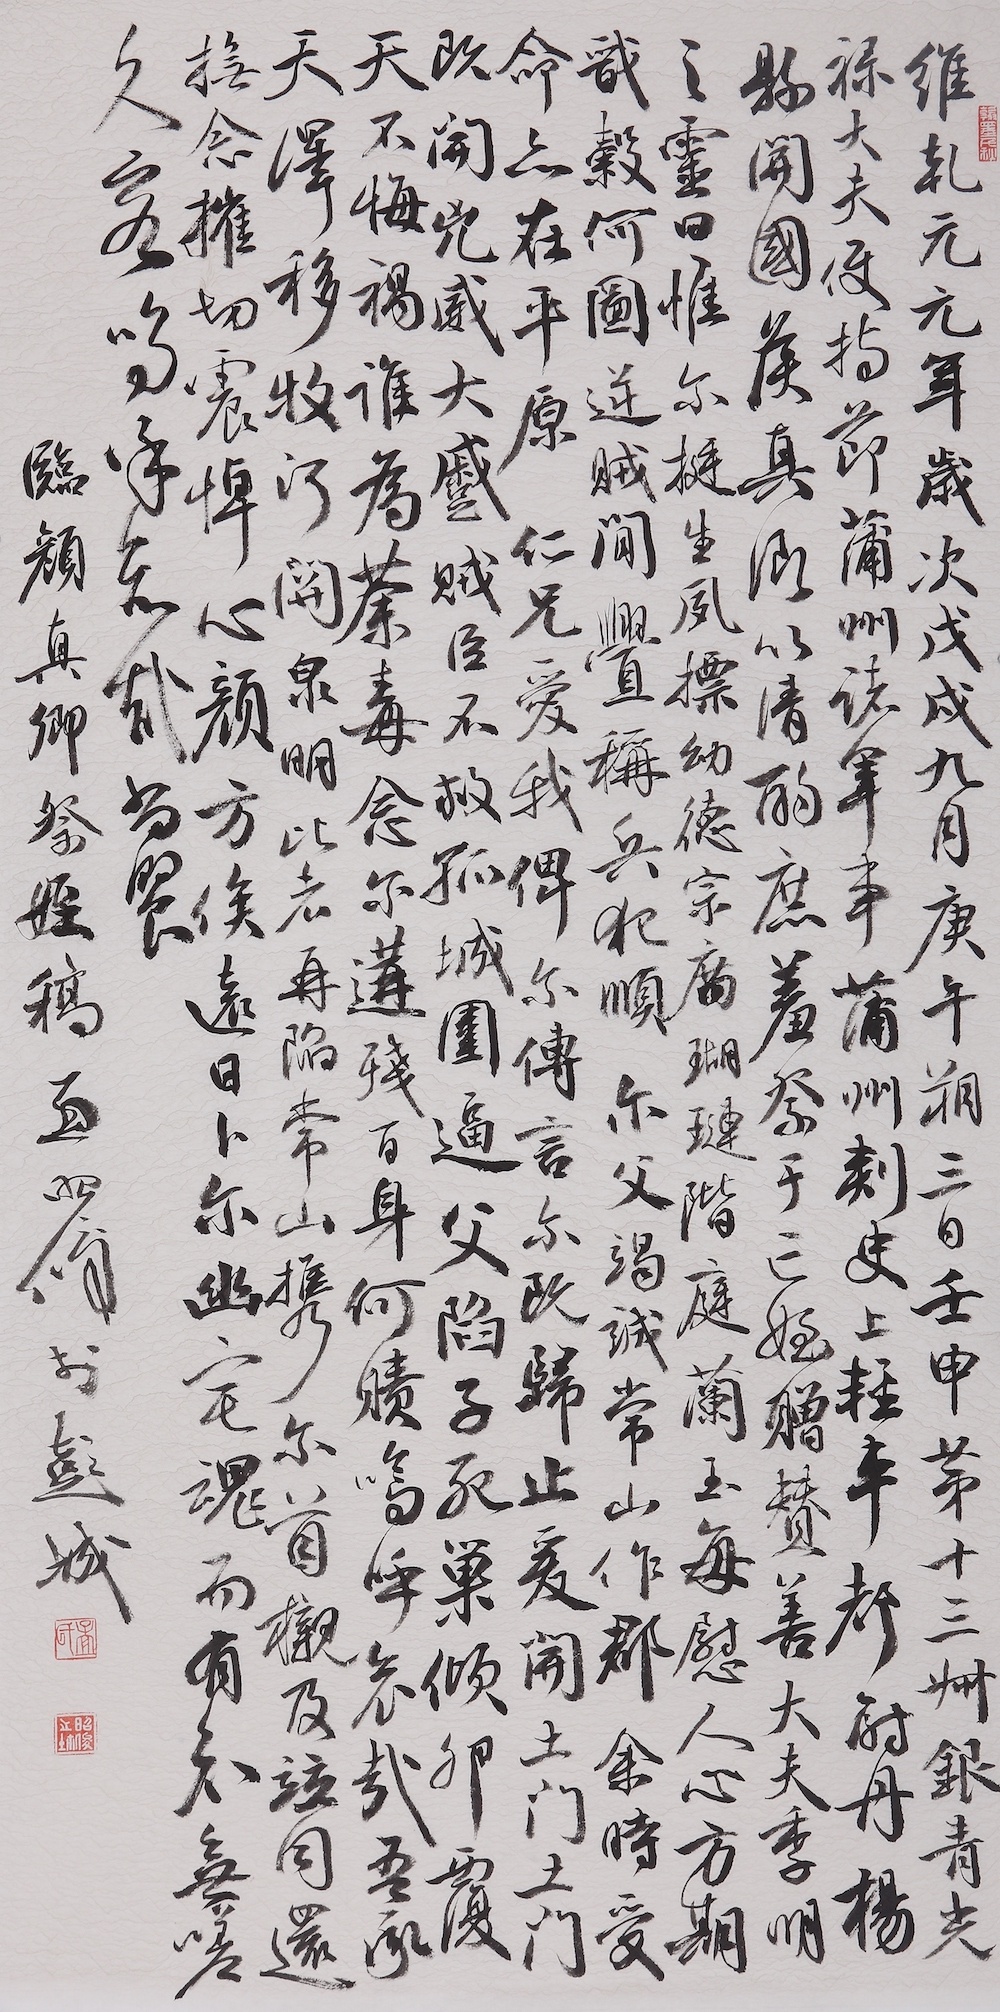 維乾元元年歲次戊戌九月庚午朔三日壬申第十三叔銀青光
祿大夫使持節蒲州諸軍事蒲州刺史上輕車都尉丹楊
縣開國侯真卿以清酌庶羞祭于亡姪贈贊善大夫季明
之靈曰惟爾挺生夙標幼德宗廟瑚璉階庭蘭玉每慰人心方期
戩穀何圖逆賊閒釁稱兵犯順爾父竭誠常山作郡余時受
命亦在平原仁兄愛我俾爾傳言爾既歸止爰開土門土門
既開兇威大蹙賊臣不救孤城圍逼父陷子死巢傾卵覆
天不悔禍誰為荼毒念爾遘殘百身何贖嗚呼哀哉吾承
天澤移牧河關泉明比者再陷常山攜爾首櫬及茲同還
撫念摧切震悼心顏方俟遠日卜爾幽宅魂而有知無嗟
久客嗚呼哀哉尚饗
臨顏真卿祭姪稿 孟昭俊於彭城